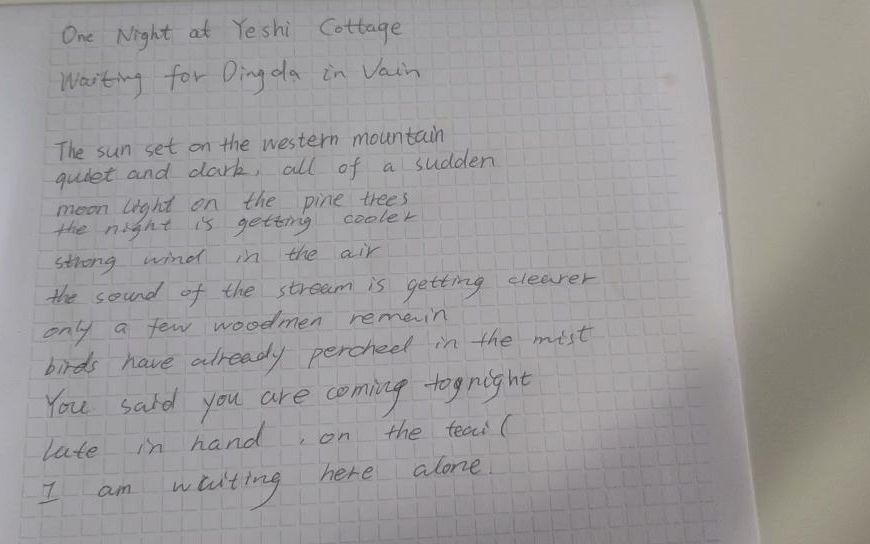 One Night at Yeshi Cottage
Waiting for Dingda in Vain
The sun set on the western mountain
quiet and dark, all of a sudden
moon light on the pine trees
the night is getting cooler
strong wind in the air
the sound of the stream is getting clearer
only a few woodmen remain
birds have already perched in the mist
You said you are coming togright
lute in hand, on the
I am waiting here alone.